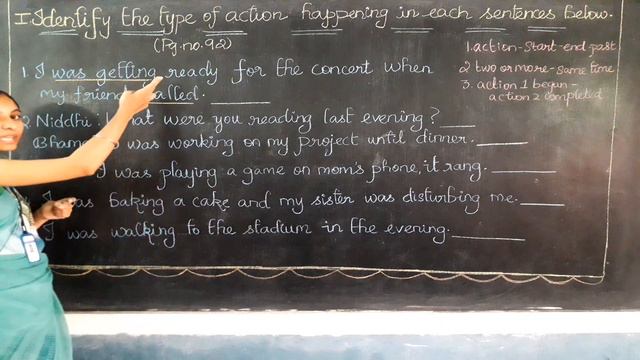 I. Identify the type of action happening in each sentences below.
(Pg.no.92)
1. action - start - end past
2 two or more - same time
3. action 1 begun -
action 2 completed
1. I was getting ready for the concert when
my friend called.
2. Niddhi : What were you reading last evening?
was working on my project until dinner.
I was playing a game on mom's phone, it rang.
I was baking a cake and my sister was disturbing me.
I was walking to the stadium in the evening.